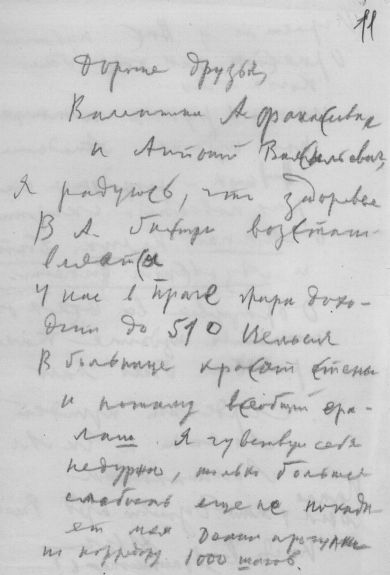 11
Дорогие друзья,
Валентина Афанасьевна
и Антоний Васильевич,
Я радуюсь, что здоровье
В А быстро возстанав-
вляется
У нас в Праге жара дохо-
дит до 51° Цельсия
В больнице красят стены
и потому всеобщий ера-
лаш. Я чувствую себя
недурно, только большая
слабость еще не покида-
ет меня Делаю прогулки
по коррдору 1000 шагов.